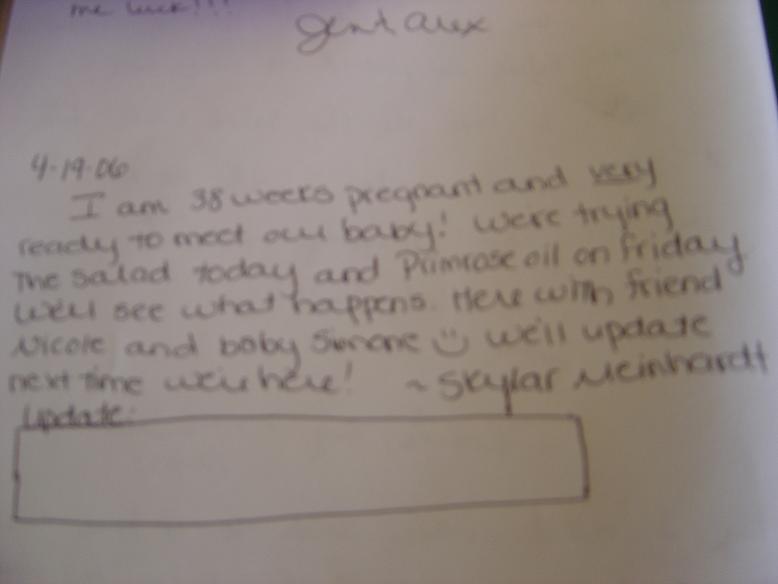 me luck!!!
Jent Alex
4-19-06
I am 38 weeks pregnant and very
ready to meet our baby! We're trying
The salad today and Primrose oil on Friday
We'll see what happens. Here with friend
Nicole and baby Simone We'll update
next time we're here! ~ Skylar Meinhardt
Update: